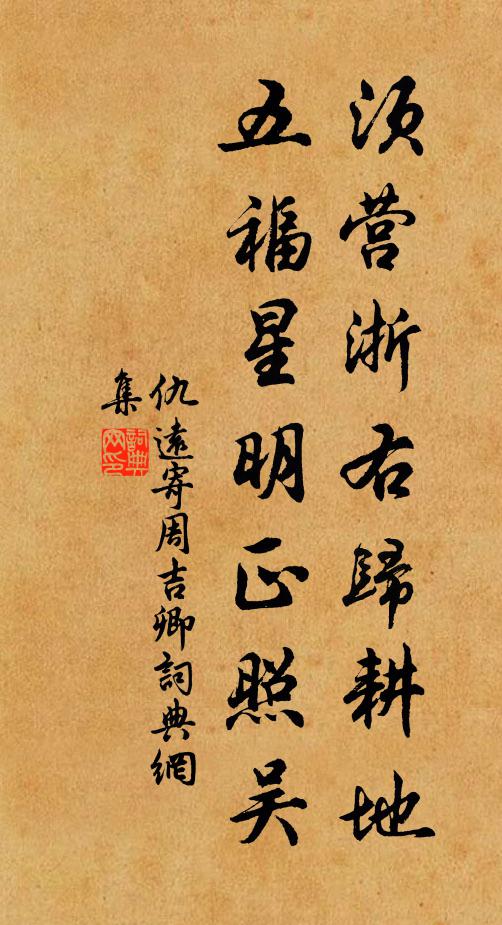 须营浙右歸耕地
五福星明正照吴
仇遠寄周吉卿詞典網
集
詞典
网印